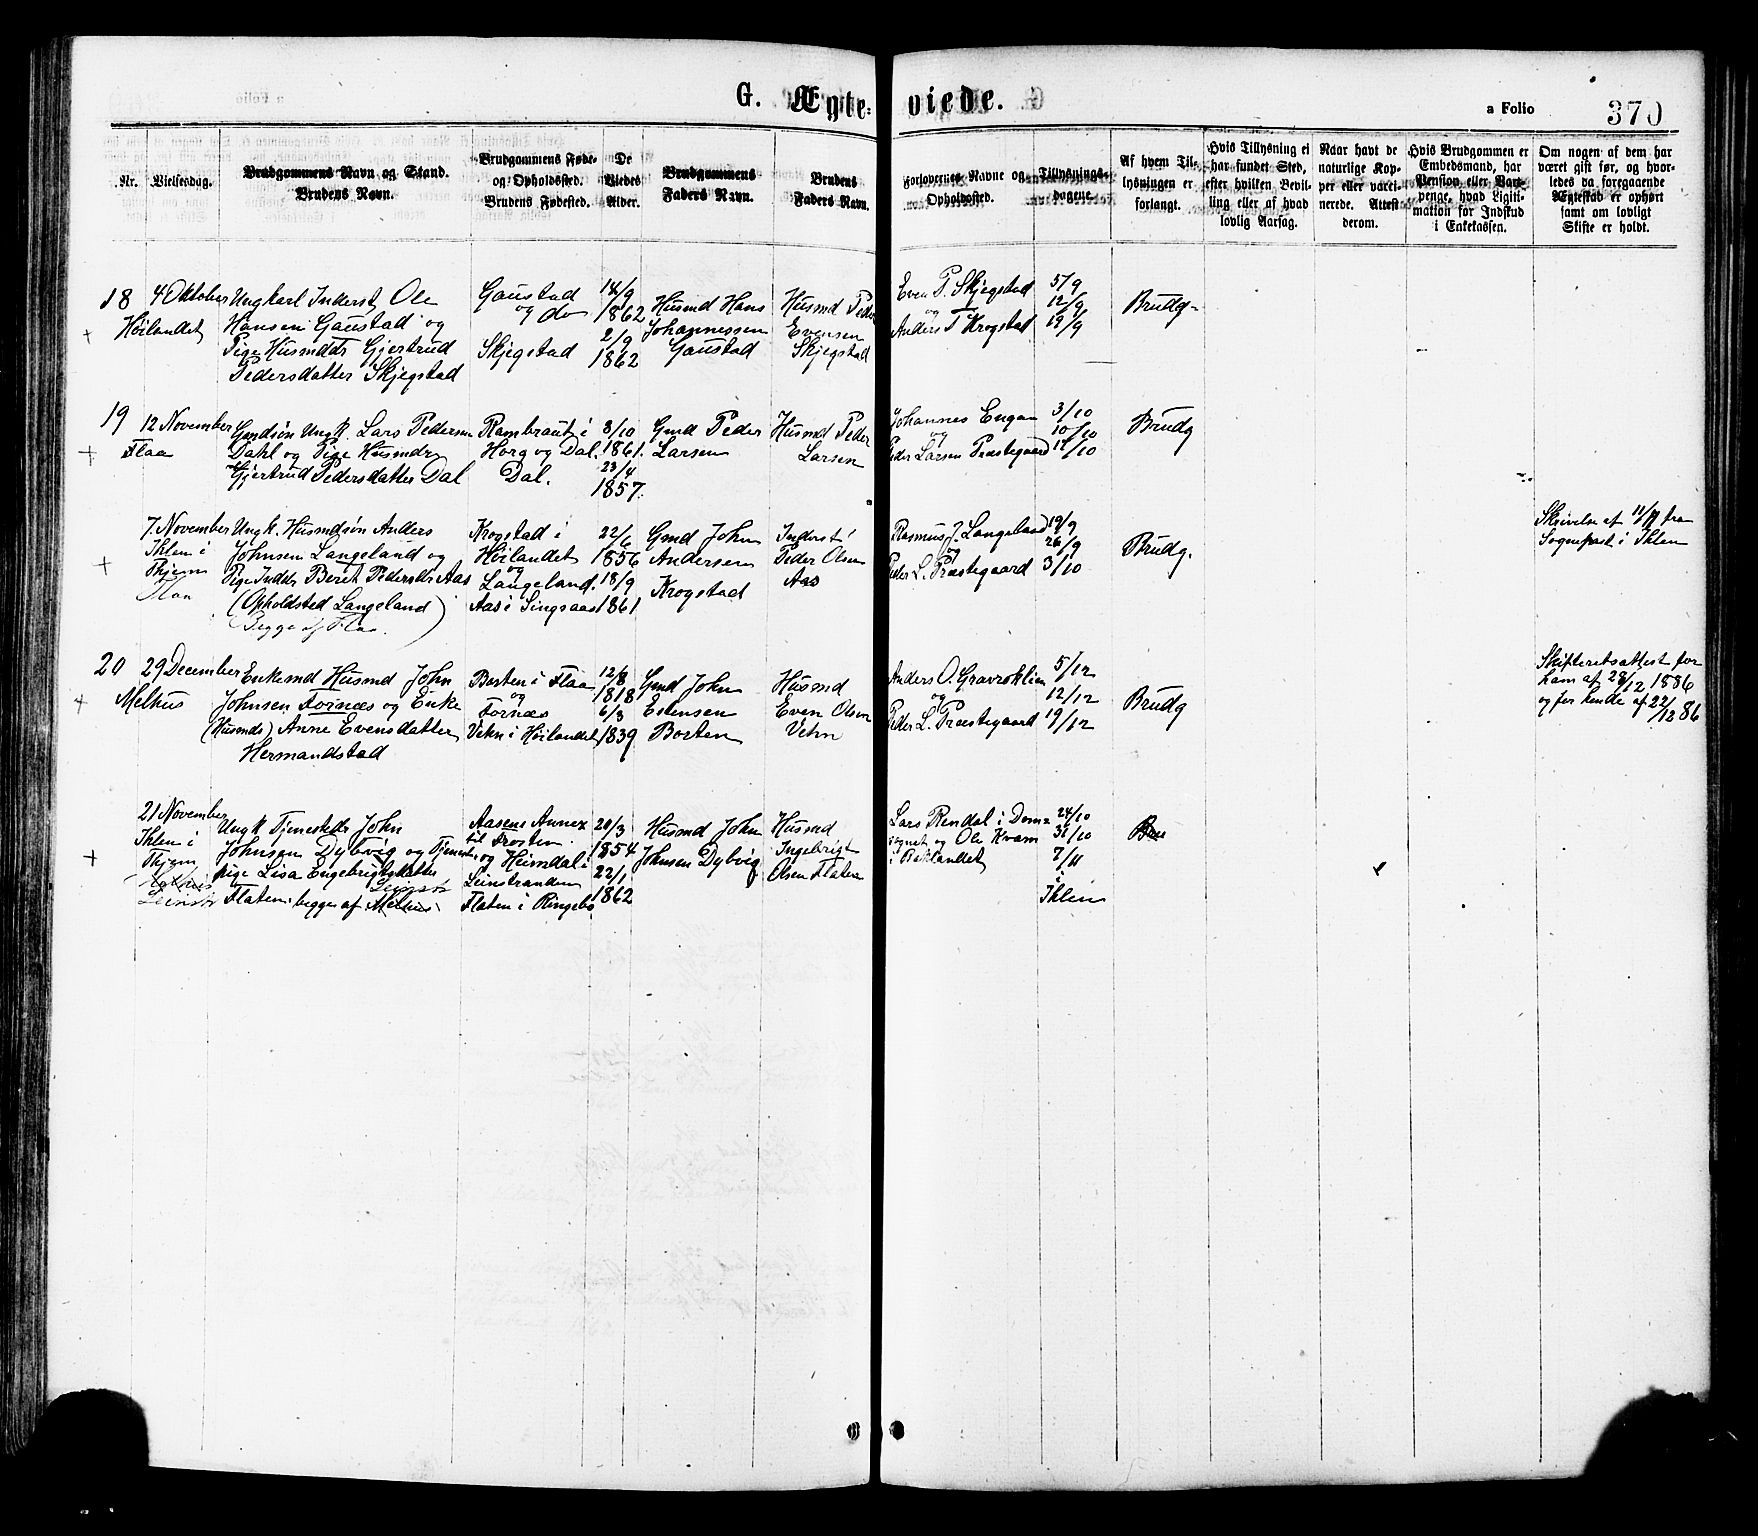 G. Ægte= viede.
a Folio 370
Nr.
Vielsesdag.
Brudgommens Navn og Stand.
Brudens Navn.
Brudgommens Føde-
og Opholdssted.
Brudens Fødested.
De
Viedes
Alder.
Brudgommens
Faders Navn.
Brudens
Faders Navn.
Forlovernes Navne og
Opholdssted.
Tillysnings-
dagene.
Af hvem Til-
lysningen er
forlangt.
Hvis Tillysning ei
har fundet Sted,
efter hvilken Bevil-
ling eller af hvad
lovlig Aarsag.
Naar havt de
naturlige Kop-
per eller vacci-
nerede. Attest
derom.
Hvis Brudgommen er
Embedsmand, har
Pension eller Var-
penge, hvad Ligiti-
mation for Indskud
i Enkekassen.
Om nogen af dem har
været gift før, og hvor-
ledes da foregaaende
Ægteskab er ophørt
samt om lovligt
Skifte er holdt.
18
4 Oktober
Høilandet
Ungkarl Inderst Ole
Hansen Gaustad og
Pige Husmdtr Gjertrud
Pedersdatter Skjegstad
Gaustad
og do
Skjegstad
14/9
1862
2/9
1862
Husmd Hans
Johannessen
Gaustad
Husmd Peder
Evensen
Skjegstad
Even P. Skjegstad
og
Anders T Krogstad
5/9
12/9
19/9
Brudg.
19
12 November
Flaa
Gmdsøn Ungk. Lars Pedersen
Dahl og Pige Husmdtr
Gjertrud Pedersdatter Dal
Rambraut i
Horg og Dal.
Dal.
8/10
1861.
23/4
1857.
Gmd Peder
Larsen
Husmd Peder
Larsen
Johannes Engan
og
Peder Larsen Præstegaard
3/10
10/10
17/10
Brudg
7. November
Ihlen i
Thjem
Flaa
Ungk. Husmdsøn Anders
Johnsen Langeland og
Pige Inddtr Beret Pedersdtr Aas
(Opholdsted Langeland)
Begge af Flaa.
Krogstad i
Høilandet
og
Langeland.
Aas i Singsaas
22/6
1856
18/9
1861
Gmd John
Andersen
Krogstad
Inderst
Peder Olsen
Aas
Rasmus J. Langeland
og
Peder L. Præstegaard
19/9
26/9
3/10
Brudg.
Skrivelse af 11/11 fra
Sognepræst i Ihlen
20
29 December
Melhus
Enkemd Husmd John
Johnsen Fornæs og Enke
(Husmds) Anne Evensdatter
Hermandstad
Borten i Flaa
og
Fornæs
Vehn i Høilandet
12/8
1818
6/3
1839
Gmd John
Estensen
Borten
Husmd
Even Olsen
Vehn
Anders O. Gravroklien
og
Peder L. Præstegaard
5/12
12/12
19/12
Brudg
Skifteretsattest for
ham af 28/12 1886
og for hende af 22/12 86
21 November
Ihlen i
Thjem
Leinstr
Ungk Tjenestedr John
Johnsen Dybvig og Tjeneste-
pige Lisa Engebrigtsdatter
Flaten. begge af Melhus
Aasens Annex
til Frosten
og Heimdal i
Leinstranden
Flaten i Ringebo
20/3
1854
22/1
1862
Husmd John
Johnsen Dybvig
Husmd
Ingebrigt
Olsen Flaten
Lars Rendal i Dom=
sognet og Ole Kvam
i Baklandet
24/10
31/10
7/11
i
Ihlen
Bru